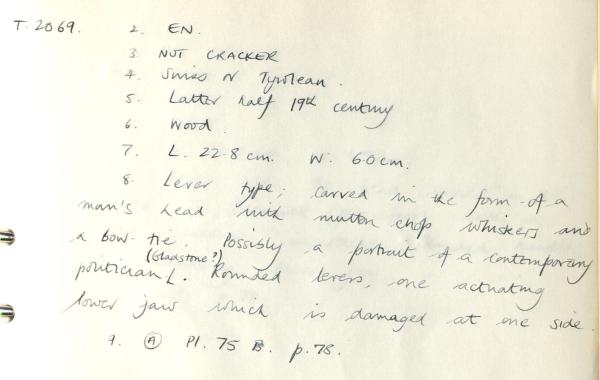 T. 2069. 2. EN.
3. NUT CRACKER
4. Swiss or Tyrolean.
5. Latter half 19th century
6. Wood.
7. L. 22.8 cm. W. 6.0 cm.
8. Lever type; carved in the form of a
man's head with mutton chop whiskers and
a bow-tie. Possibly a portrait of a contemporary
(Gladstone?)
politician. Rounded levers, one actuating
lower jaw which is damaged at one side.
9. A Pl. 75 B. p. 78.